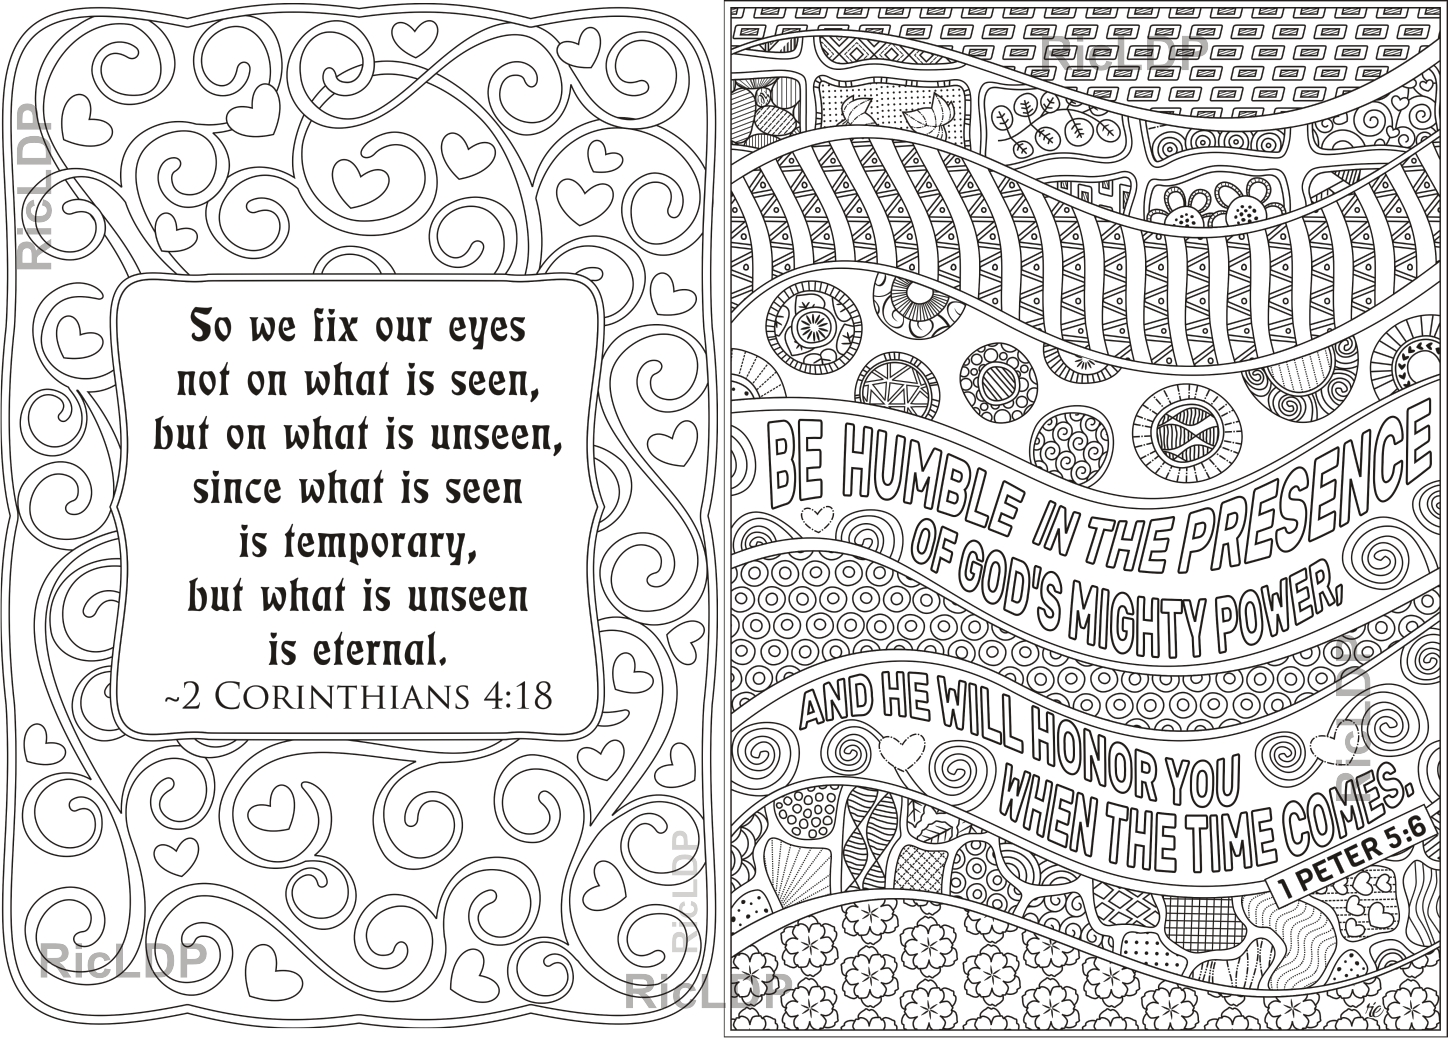 So we fix our eyes
not on what is seen,
but on what is unseen,
since what is seen
is temporary,
but what is unseen
is eternal.
~2 CORINTHIANS 4:18
RicLDP
RicLDP
RicLDP
RicLDP
RicLDP
BE HUMBLE IN THE PRESENCE
OF GOD'S MIGHTY POWER,
AND HE WILL HONOR YOU
WHEN THE TIME COMES.
1 PETER 5:6
RicLDP